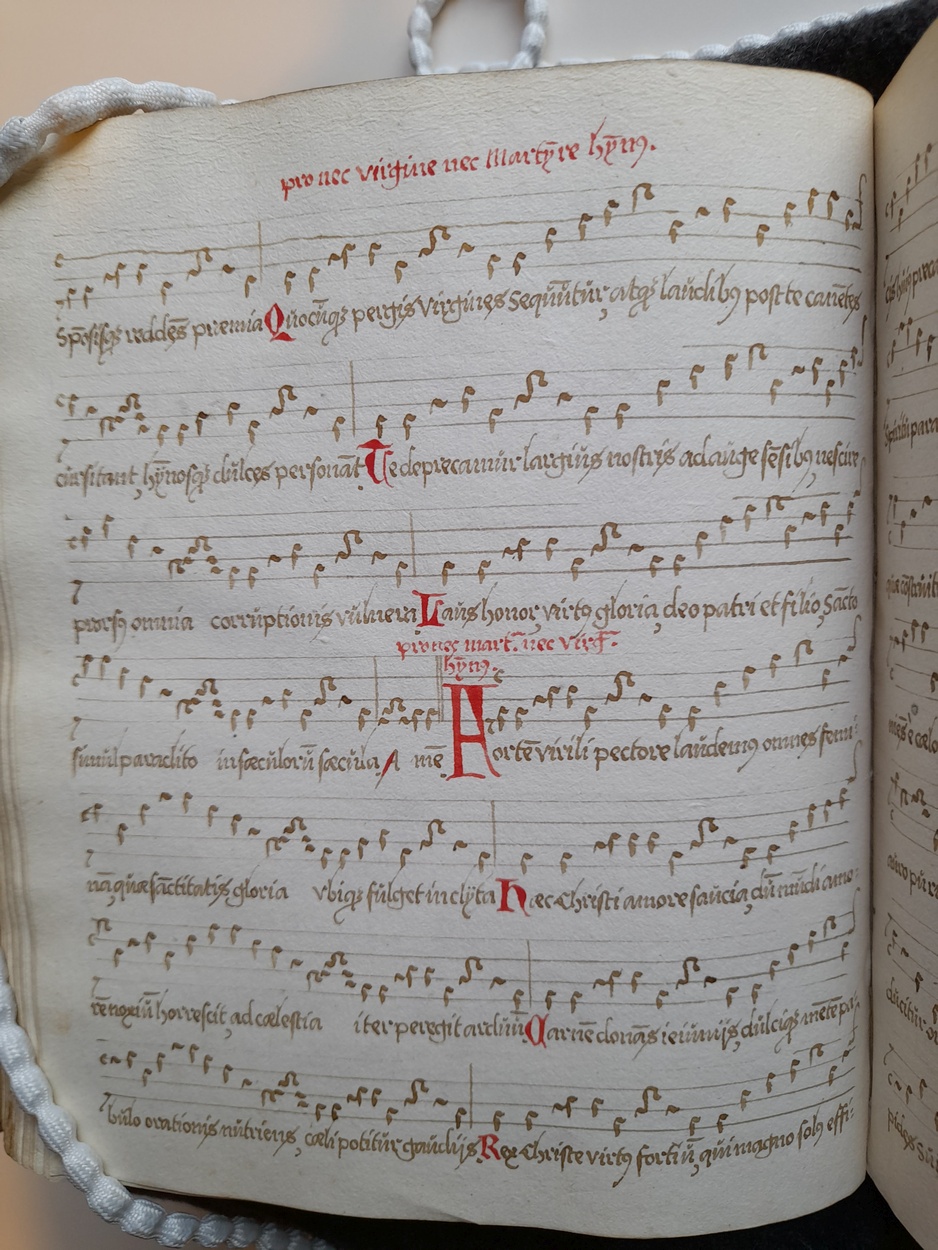 pro nec virgine nec Martȳre hȳn9.
Spōsisqȝ reddēs premia Quocūqȝ pergis virgines sequūtur, atqȝ laudibȝ post te canētes
cursitant, hȳnosqȝ dulces personāt Te deprecamur largius nostris adauge sēsibȝ nescire
prorsȝ omnia corruptionis vulnera Laus honor, virtȝ gloria, deo patri et filio, Sācto
pro nec mart. nec virg.
hȳn9.
simul paraclito in sæculorū sæcula, A mē. Fortē virili pectore laudemȝ omnes femi-
nā, quæ sāctitatis gloria vbiqȝ fulget inclyta Hec Christi amore saucia, dū mūdi amo-
rē noxiū horrescit, ad cælestia iter peregit arduū Carnē domās ieiunijs, dulciqȝ mētē pa-
bulo orationis nutriens, cæli potitur gaudijs. Rex Christe virtȝ fortiū, qui magno solȝ effi-